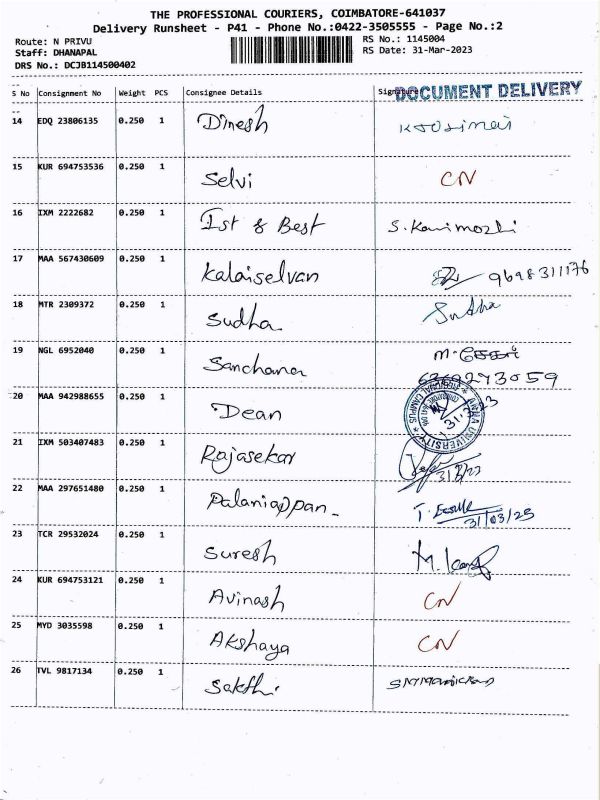 THE PROFESSIONAL COURIERS, COIMBATORE-641037
Delivery Runsheet - P41 - Phone No.:0422-3505555 - Page No.:2
Route: N PRIVU
RS No.: 1145004
Staff: DHANAPAL
RS Date: 31-Mar-2023
DRS No.: DCJB114500402
S No Consignment No Weight PCS Consignee Details Signature DOCUMENT DELIVERY
14 EDQ 23806135 0.250 1 Dinesh
15 KUR 694753536 0.250 1 Selvi CN
16 IXM 2222682 0.250 1 Ist & Best S. Kanimozhi
17 MAA 567430609 0.250 1 Kalaiselvan 9698311176
18 MTR 2309372 0.250 1 Sudha Sudha
19 NGL 6952040 0.250 1 Sanchana M. சேகர்
20 MAA 942988655 0.250 1 Dean
21 IXM 503407483 0.250 1 Rajasekar
22 MAA 297651480 0.250 1 Palaniappan - 31/03/23
23 TCR 29532024 0.250 1 Suresh
24 KUR 694753121 0.250 1 Avinash CN
25 MYD 3035598 0.250 1 Akshaya CN
26 TVL 9817134 0.250 1 Sakthi